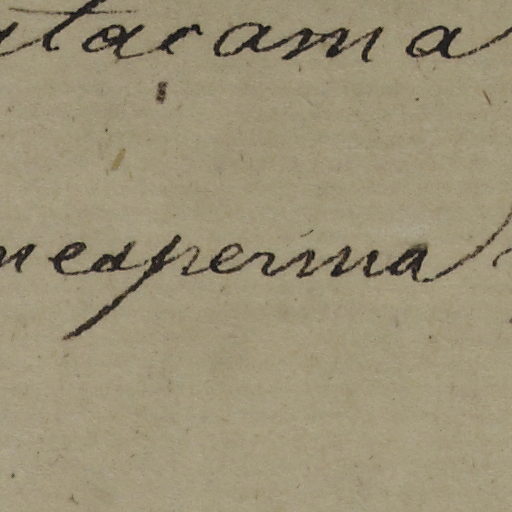 atacama
nedperma